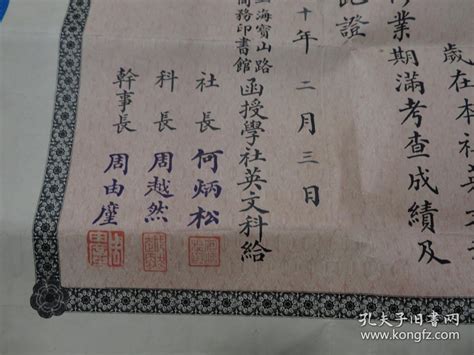 歲在本社英
業期滿考查成績及
證
十年二月三日
海寶山路
商務印書館
函授學社英文科給
社長 何炳松
科長 周越然
幹事長 周由廑
孔夫子旧书网
www.kongfz.com